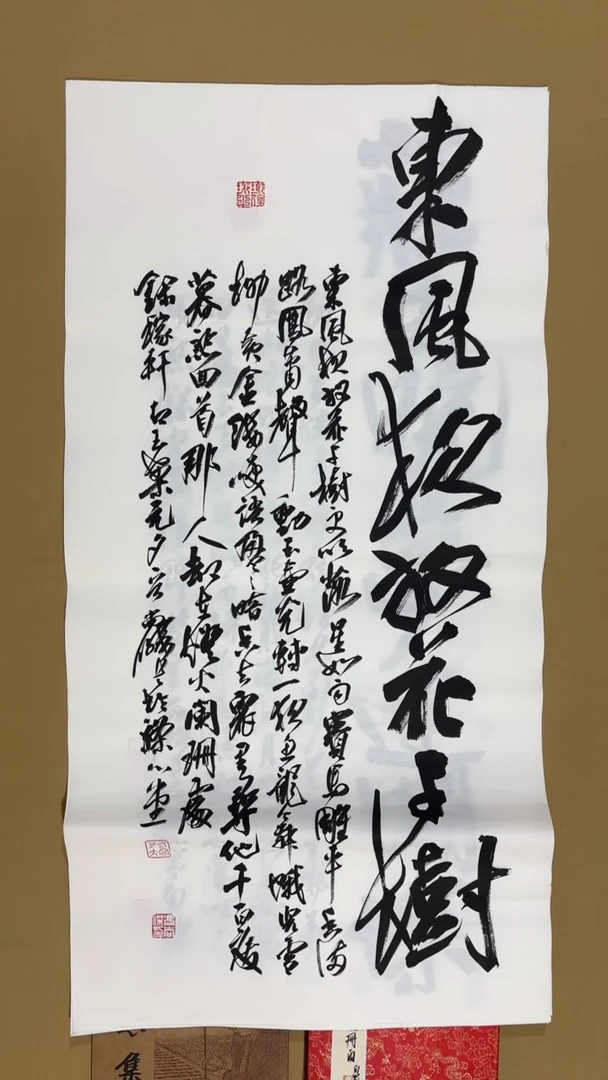 東風夜放花千樹
東風夜放花千樹更吹落星如雨寶馬雕車香滿
路鳳簫聲動玉壺光轉一夜魚龍舞蛾兒雪
柳黃金縷笑語盈盈暗香去眾里尋他千百度
驀然回首那人却在燈火闌珊處
錄稼軒青玉案元夕
集
冊自